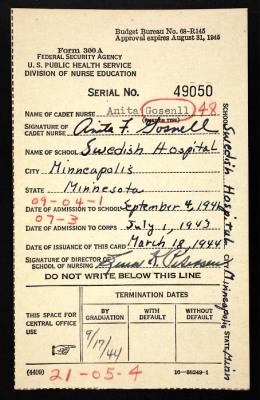 Budget Bureau No. 68-R145
Approval expires August 31, 1945
Form 300A
FEDERAL SECURITY AGENCY
U. S. PUBLIC HEALTH SERVICE
DIVISION OF NURSE EDUCATION
SERIAL NO. 49050
NAME OF CADET NURSE Anita Gosnell 48
SIGNATURE OF CADET NURSE Anita F. Gosnell
NAME OF SCHOOL Swedish Hospital
CITY Minneapolis
STATE Minnesota
09-04-1
DATE OF ADMISSION TO SCHOOL September 4, 1941
07-3
DATE OF ADMISSION TO CORPS July 1, 1943
DATE OF ISSUANCE OF THIS CARD March 18, 1944
SIGNATURE OF DIRECTOR OF SCHOOL OF NURSING
DO NOT WRITE BELOW THIS LINE
THIS SPACE FOR CENTRAL OFFICE USE
TERMINATION DATES
BY GRADUATION
WITH DEFAULT
WITHOUT DEFAULT
9/17/44
(4409)
21-05-4
16—35249-1
SCHOOL Swedish Hospital of Minneapolis STATE